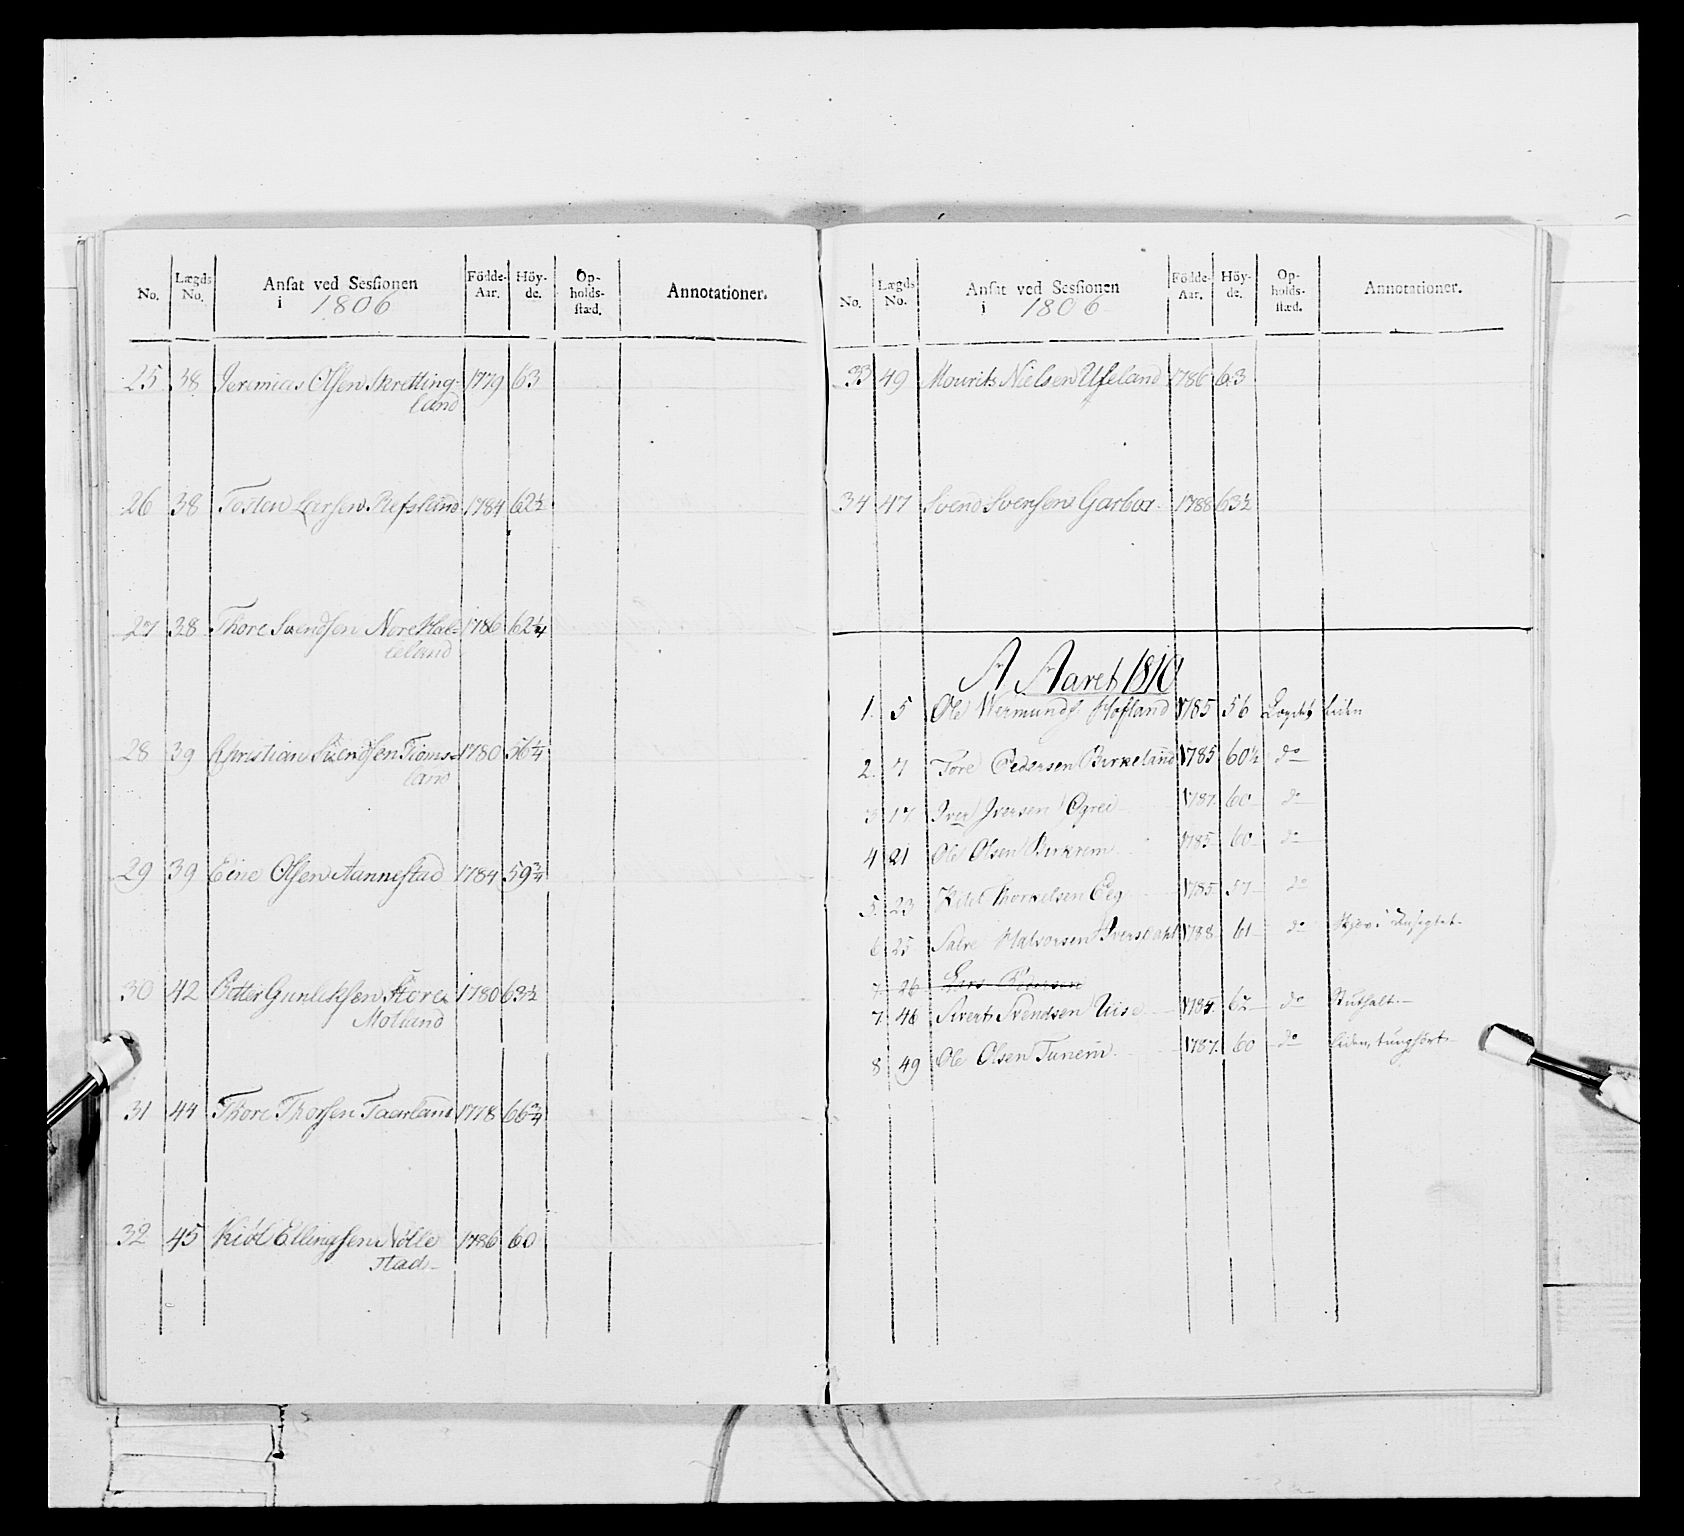 No. Lægds No. Ansat ved Sessionen i 1806 Födde-Aar. Höy-de. Op-holds-stæd. Annotationer.
25 38 Jeremias Olsen Skretting-
land 1779 63
26 38 Tosten Larsen Refsland 1784 62½
27 38 Thore Svendsen Nore Hæ-
leland 1786 62¼
28 39 Christian Svendsen Tiøms-
land 1780 56¼
29 39 Eene Olsen Aannestad 1784 59¾
30 42 Petter Gunleksen Store
Motland 1780 63½
31 44 Thore Thorsen Taarland 1778 66¾
32 45 Kiøl Ellingsen Nølle
stad 1786 60
No. Lægds No. Ansat ved Sessionen i 1806 Födde-Aar. Höy-de. Op-holds-stæd. Annotationer.
33 49 Mourits Nielsen Ueland 1786 63
34 47 Svend Svensen Garbor 1788 63½
A Aaret 1810
1. 5 Ole Wermunds. Hofland 1785 56 Lægdet liden
2. 7 Tore Pedersen Birkeland 1785 60½ do
3 17 Iver Iversen Øgrei 1787 60 do
4 21 Ole Olsen Birkrem 1785 60 do
5. 23 Ketel Thorkelsen Eeg 1785 57 do
6 25 Salve Halvorsen Iversdahl 1788 61 do Skjev i Ansigtet
7. 26 Lars Pedersen
7. 48 Sivert Svendsen Uise 1784 62 do
8 49 Ole Olsen Tunem 1787 60 do liden, tunghørt